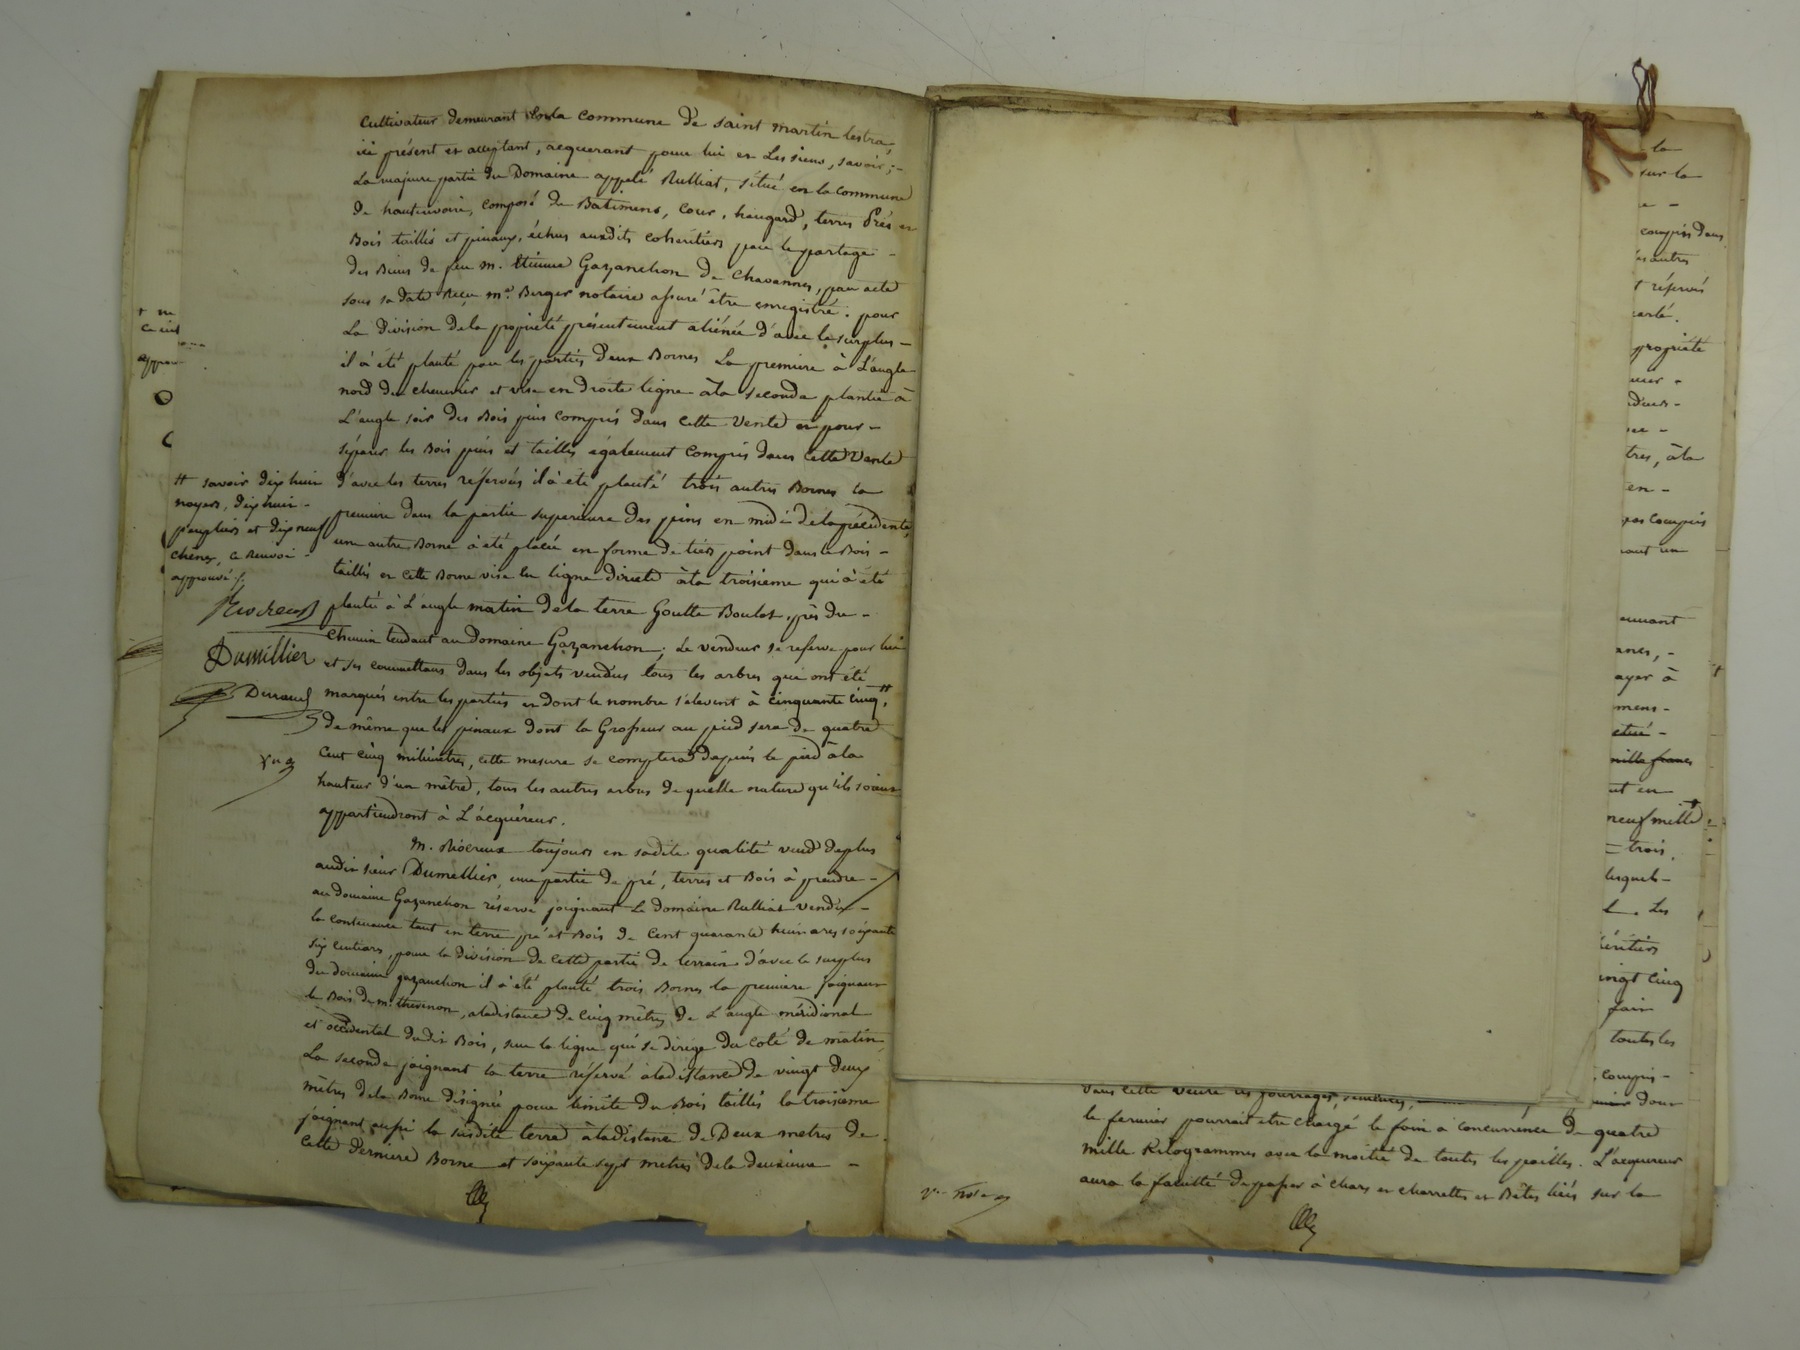 cultivateur demeurant en la commune de saint martin lestra,
ici présent et acceptant, acquerant pour lui et Les siens, savoir; -
La majeure partie du Domaine appelé Rulliat, situé en la commune
de hauterivoire, composé de Batimens, cour, hangard, terres Prés et
Bois taillis et pinaux, échus auxdits coheritiers par le partage -
des Biens de feu m. Etienne Gazanchon de Chavannes, par acte
sous sa date Reçu me. Berger notaire assuré être enregistré. pour
La Division de la propriété présentement aliénée d'avec le surplus -
il à été planté par les parties Deux Bornes La premiere à L'angle
nord du chenevier et vise en droite ligne à la seconde plantée à
L'angle soir des Bois pins compris dans cette Vente et pour -
séparer les Bois pins et taillis également compris dans cette Vente
d'avec les terres réservées il à été planté trois autres Bornes la
premiere dans la partie superieure des pins en midi de la précédente,
une autre Borne à été placée en forme de tiers point dans le Bois -
taillis et cette Borne vise en ligne directe à la troisieme qui à été
plantée à L'angle matin de la terre Goutte Boulot, près du -
chemin tendant au Domaine Gazanchon; Le vendeur se reserve pour lui
et ses commettans dans les objets vendus tous les arbres qui ont été
marqués entre les parties et dont le nombre s'elevent à cinquante cinq, #
de même que les pinaux dont la Grosseur au pied sera de quatre
cent cinq milimetres, cette mesure se comptera depuis le pied à la
hauteur d'un mêtre, tous les autres arbres de quelle nature qu'ils soient
appartiendront à L'acquéreur.
m. Riocreux toujours en sadite qualité vend deplus
audit sieur Dumellier, une partie de pré, terres et Bois à prendre -
au domaine Gazanchon réservé joignant Le domaine Rulliat vendu -
la contenance tant en terre pré et Bois de cent quarante huit ares soixante
six centiares, pour la division de cette partie de terrain d'avec le surplus
du domaine gazanchon il à été planté trois Bornes la premiere joignant
le Bois de m. thevenon, à la distance de cinq mêtres de L'angle méridional
et occidental dudit Bois, sur la ligne qui se dirige du coté de matin,
La seconde joignant la terre réservé à la distance de vingt deux
mêtres de la Borne désignée pour limite du Bois taillis la troisieme
joignant aussi la susdite terre à la distance de Deux metres de
cette derniere Borne et soixante sept metres de la deuxieme -
# savoir dix huit
noyers, dix huit -
peupliers et dix neuf
chênes, ce Renvoi -
approuvé
Riocreux
Dumillier
la
sur la
compris dans
les autres
réservés
propriété
tres, à la
en -
pas compris
ayer à
mens -
mille francs
et en
neuf mille
= trois.
lesquels -
Les
héritiers
vingt cinq
foin
toutes les
compris -
dans cette vente les fourrages,
dont
le fermier pourrait etre chargé le foin a concurrence de quatre
mille Kilogrammes avec la moitié de toutes les pailles. L'acquereur
aura la faculté de passer à chars et charrettes et Bêtes liées sur la